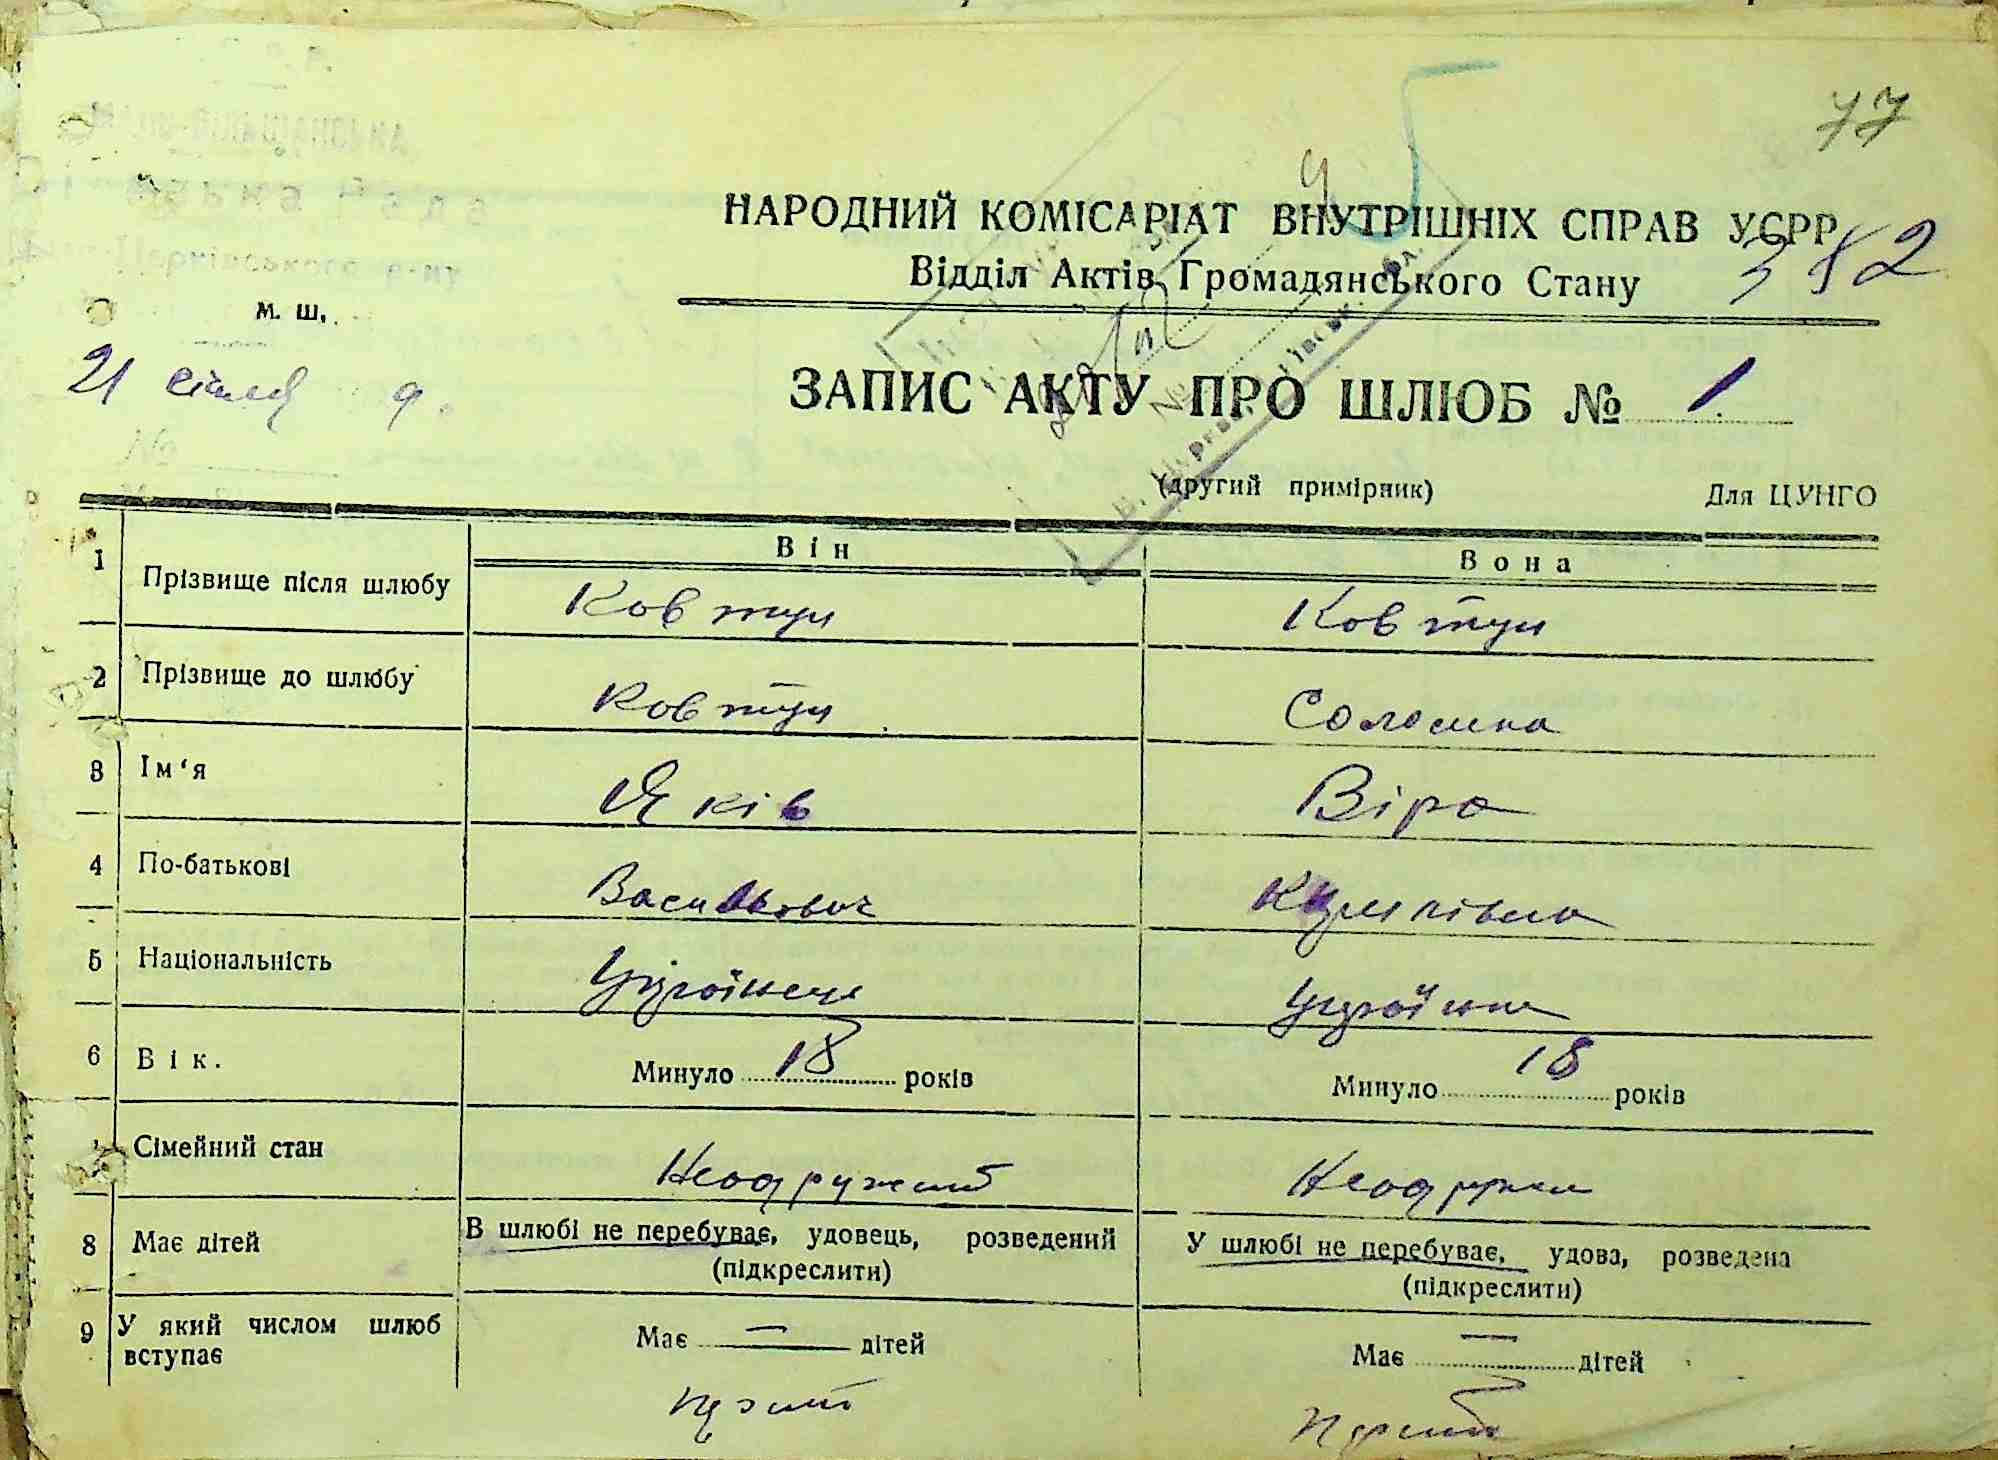 77
НАРОДНИЙ КОМІСАРІАТ ВНУТРІШНІХ СПРАВ УСРР
Відділ Актів Громадянського Стану
382
м. ш.
21 січня 9
ЗАПИС АКТУ ПРО ШЛЮБ № 1
(другий примірник) Для ЦУНГО
Він Вона
1 Прізвище після шлюбу Ковтун Ковтун
2 Прізвище до шлюбу Ковтун Солосина
3 Ім'я Яків Віра
4 По-батькові Васильович
5 Національність Українець Українка
6 Вік. Минуло 18 років Минуло 18 років
Сімейний стан Неодружений Неодружена
8 Має дітей В шлюбі не перебуває, удовець, розведений У шлюбі не перебуває, удова, розведена
(підкреслити) (підкреслити)
9 У який числом шлюб вступає Має — дітей Має — дітей